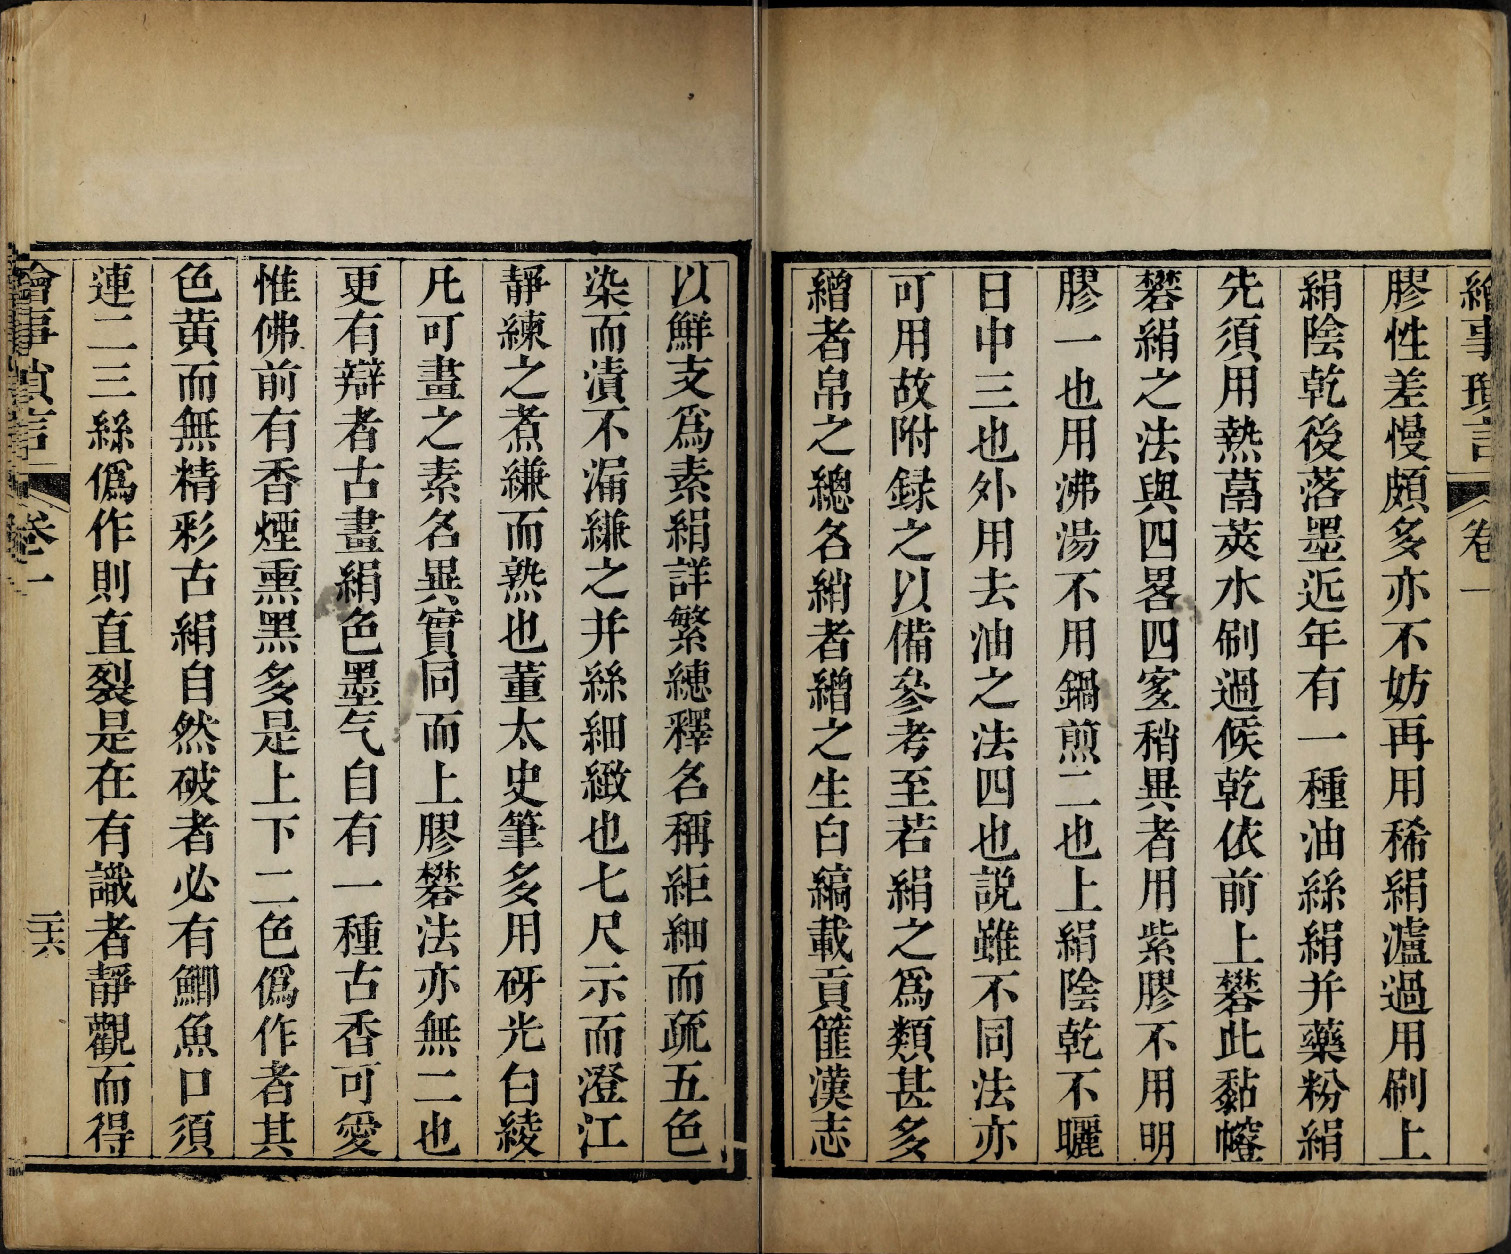 繪事瑣言 卷一
膠性差慢頗多亦不妨再用稀絹瀘過用刷上
絹陰乾後落墨近年有一種油絲絹并藥粉絹
先須用熱萵莢水刷過候乾依前上礬此黏幰
礬絹之法與四畧四宻稍異者用紫膠不用明
膠一也用沸湯不用鍋煎二也上絹陰乾不曬
日中三也外用去油之法四也說雖不同法亦
可用故附録之以備參考至若絹之爲類甚多
繒者帛之總名綃者繒之生白縞載貢篚漢志
以鮮支爲素絹詳繁繐釋名稱絁細而疏五色
染而漬不漏縑之并絲細緻也七尺示而澄江
靜練之煮縑而熟也董太史筆多用砑光白綾
凡可畫之素名異實同而上膠礬法亦無二也
更有辯者古畫絹色墨气自有一種古香可愛
惟佛前有香煙熏黑多是上下二色僞作者其
色黄而無精彩古絹自然破者必有鯽魚口須
連二三絲僞作則直裂是在有識者靜觀而得
繪事瑣言 卷一 二十六